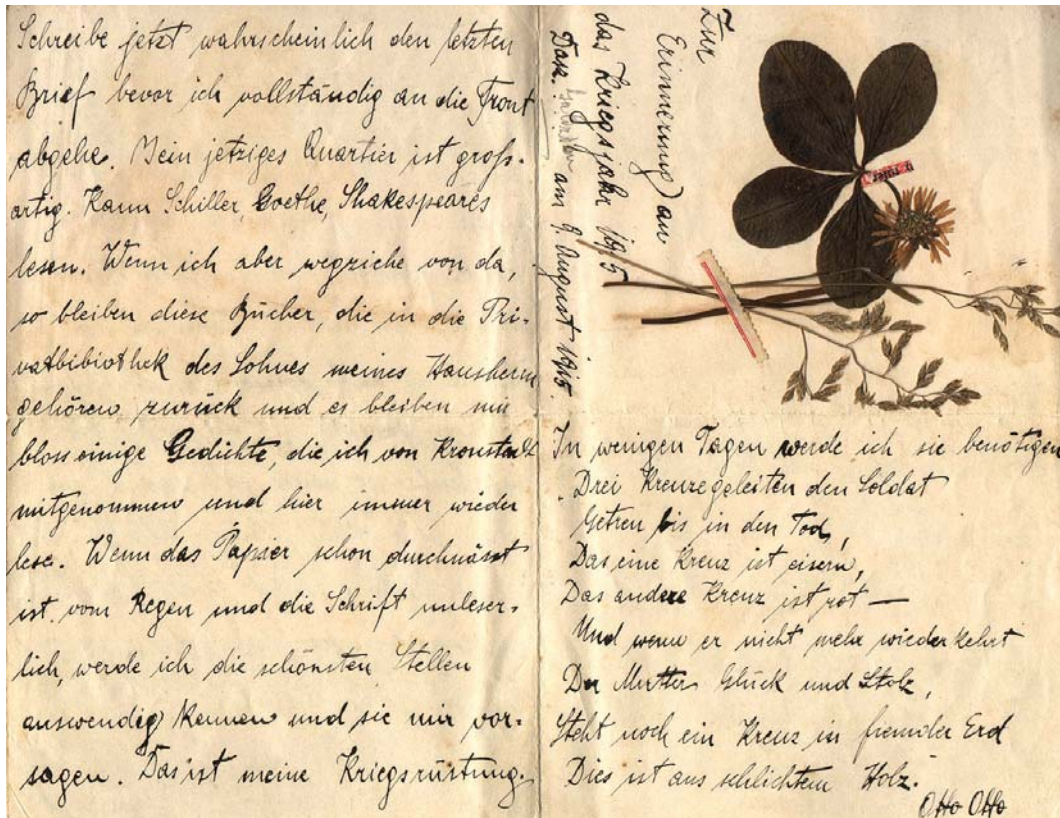 Schreibe jetzt wahrscheinlich den letzten
Brief bevor ich vollständig an die Front
abgehe. Mein jetziges Quartier ist groß-
artig. Kann Schiller, Goethe, Shakespeares
lesen. Wenn ich aber wegziehe von da,
so bleiben diese Bücher, die in die Pri-
vatbibiothek des Sohnes meines Hausherrn
gehören zurück und es bleiben mir
bloss einige Gedichte, die ich von Kronstadt
mitgenommen und hier immer wieder
lese. Wenn das Papier schon durchnässt
ist vom Regen und die Schrift unleser-
lich, werde ich die schönsten Stellen
auswendig kennen und sie mir vor-
sagen. Das ist meine Kriegsrüstung.
Zur
Erinnerung an
das Kriegsjahr 1915
am 9. August 1915.
In wenigen Tagen werde ich sie benötigen
Drei Kreuze geleiten den Soldat
Getreu bis in den Tod,
Das eine Kreuz ist eisern,
Das andere Kreuz ist rot —
Und wenn er nicht mehr wiederkehrt
Der Mutter Glück und Stolz,
Steht noch ein Kreuz in fremder Erd
Dies ist aus schlichtem Holz.
Otto Otto